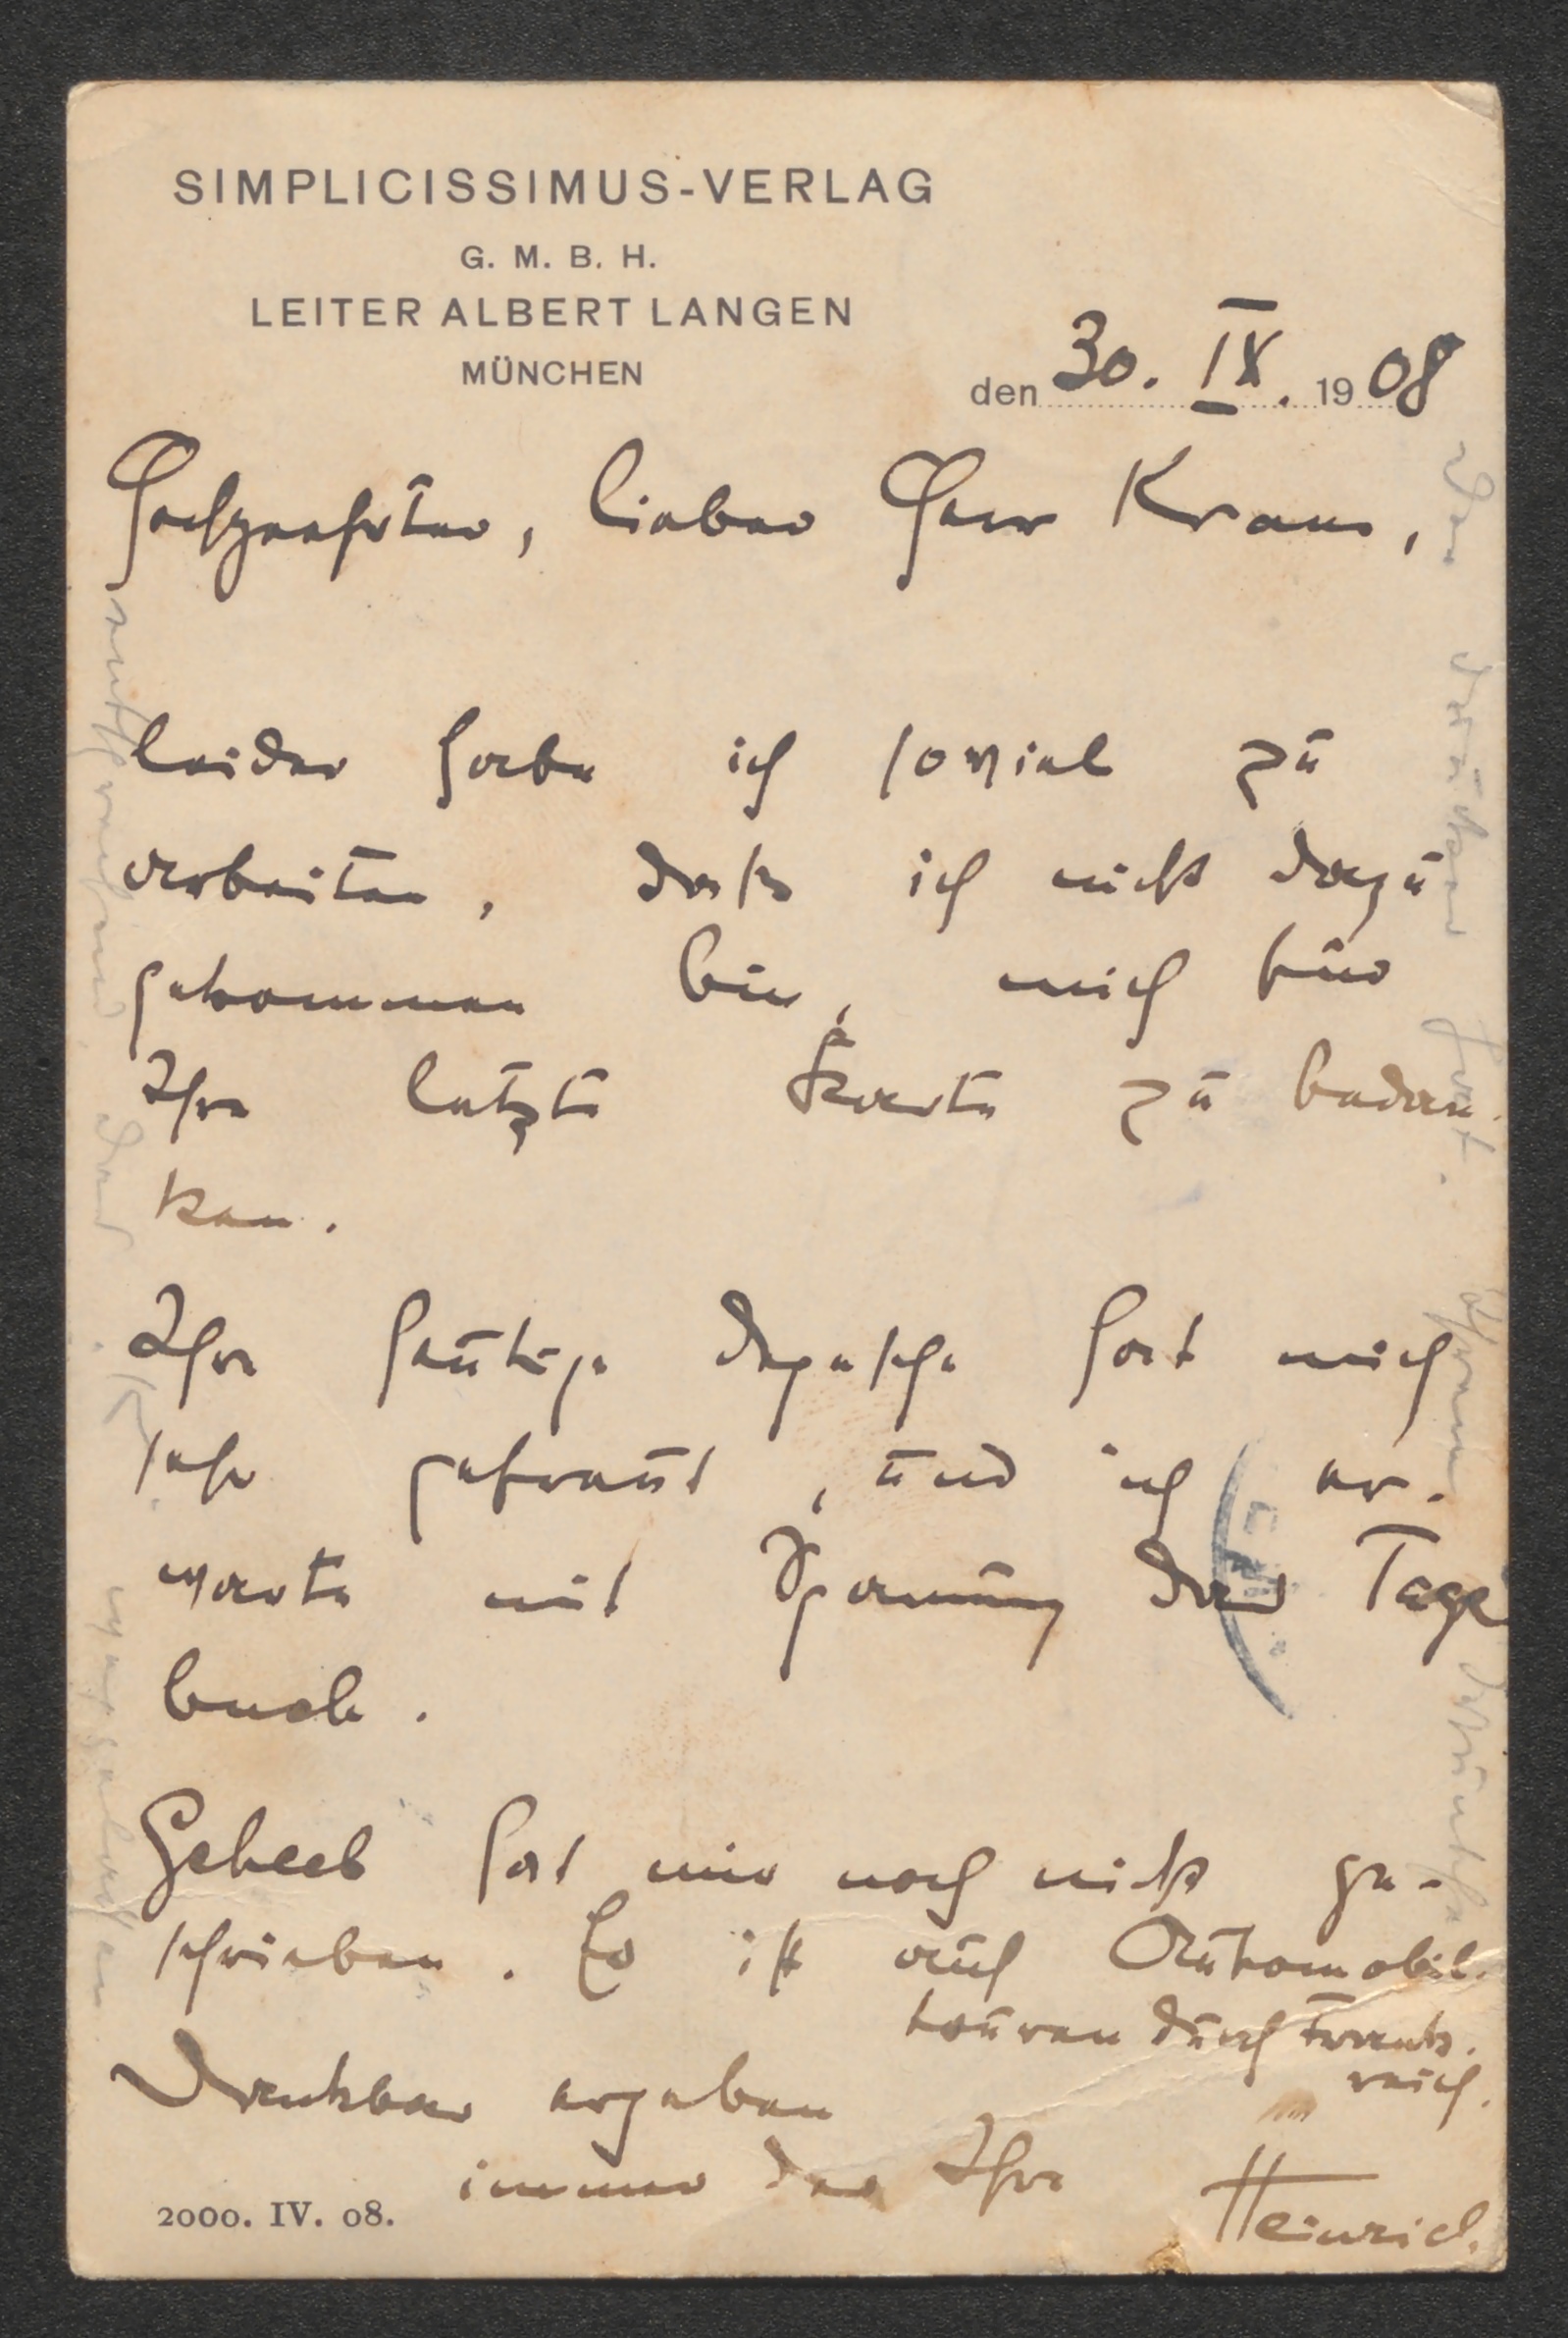 SIMPLICISSIMUS-VERLAG
G. M. B. H.
LEITER ALBERT LANGEN
MÜNCHEN
den 30. IX. 1908
Hochgeehrter, lieber Herr Kraus,
leider habe ich soviel zu
arbeiten, dass ich nicht dazu
gekommen bin, mich für
Ihre letzte Karte zu bedan-
ken.
Ihre heutige Depesche hat mich
sehr gefreut, und ich er-
warte mit Spannung das Tage
buch.
Geheeb hat mir noch nicht ge-
schrieben. Er ist auf Automobil-
touren durch Frank-
reich.
Dankbar ergeben
immer der Ihre
Heinrich.
2000. IV. 08.